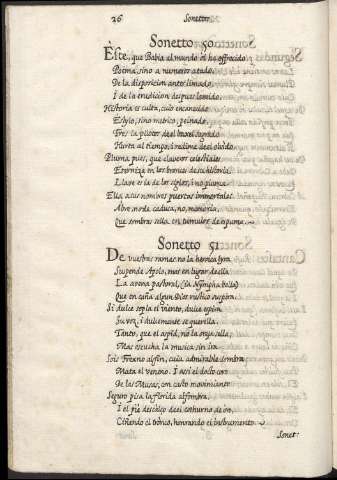 26 Sonettos
Sonetto 50
Este, que Babia al mundo oi ha offrecido
Poëma, sino a numeros atado,
De la disposicion antes limado,
I de la erudicion despues lamido,
Historia es culta, cuio encanecido
Estylo, sino metrico, peinado,
Tres ia pilotos del bajel sagrado
Hurta al tiempo, i redime del olvido.
Pluma pues, que claveros celestiales
Eterniza en los bronces de su historia,
Llave es ia de los siglos, i no pluma.
Ella a sus nombres puertas immortales
Abre, no de caduca, no, memoria,
Que sombras sella en tumulos de espuma.
Sonetto 51
De vuestras ramas no la heroica lyra
Suspende Apolo, mas en lugar de ella
La avena pastoral, ia Nympha bella,
Que en caña algun Dios rustico suspira.
Si dulce sopla el viento, dulce espira
Su voz, i dulcemente se querella,
Tanto, que el aspid, no la oreja sella,
Mas escucha la musica sin ira.
Sois Frexno al fin, cuia admirable sombra
Mata el veneno. I assi el docto coro
De las Musas, con casto movimiento
Seguro pisa la florida alfombra,
I el pie descalço del cothurno de oro,
Ciñendo el tronco, honrando el instrumento.
Sonet: